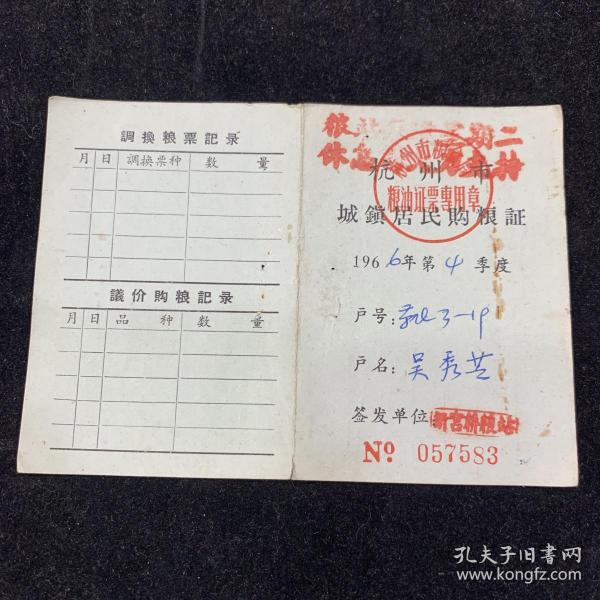 調換粮票記录
月 日 調換票种 数 量
議价購粮記录
月 日 品 种 数 量
休 持
杭州市
粮油证票專用章
城鎮居民購粮証
1966年第4季度
戶号: 3-19
戶名: 吴秀芸
签发单位 新宫桥粮站
№ 057583
孔夫子旧书网
www.kongfz.com